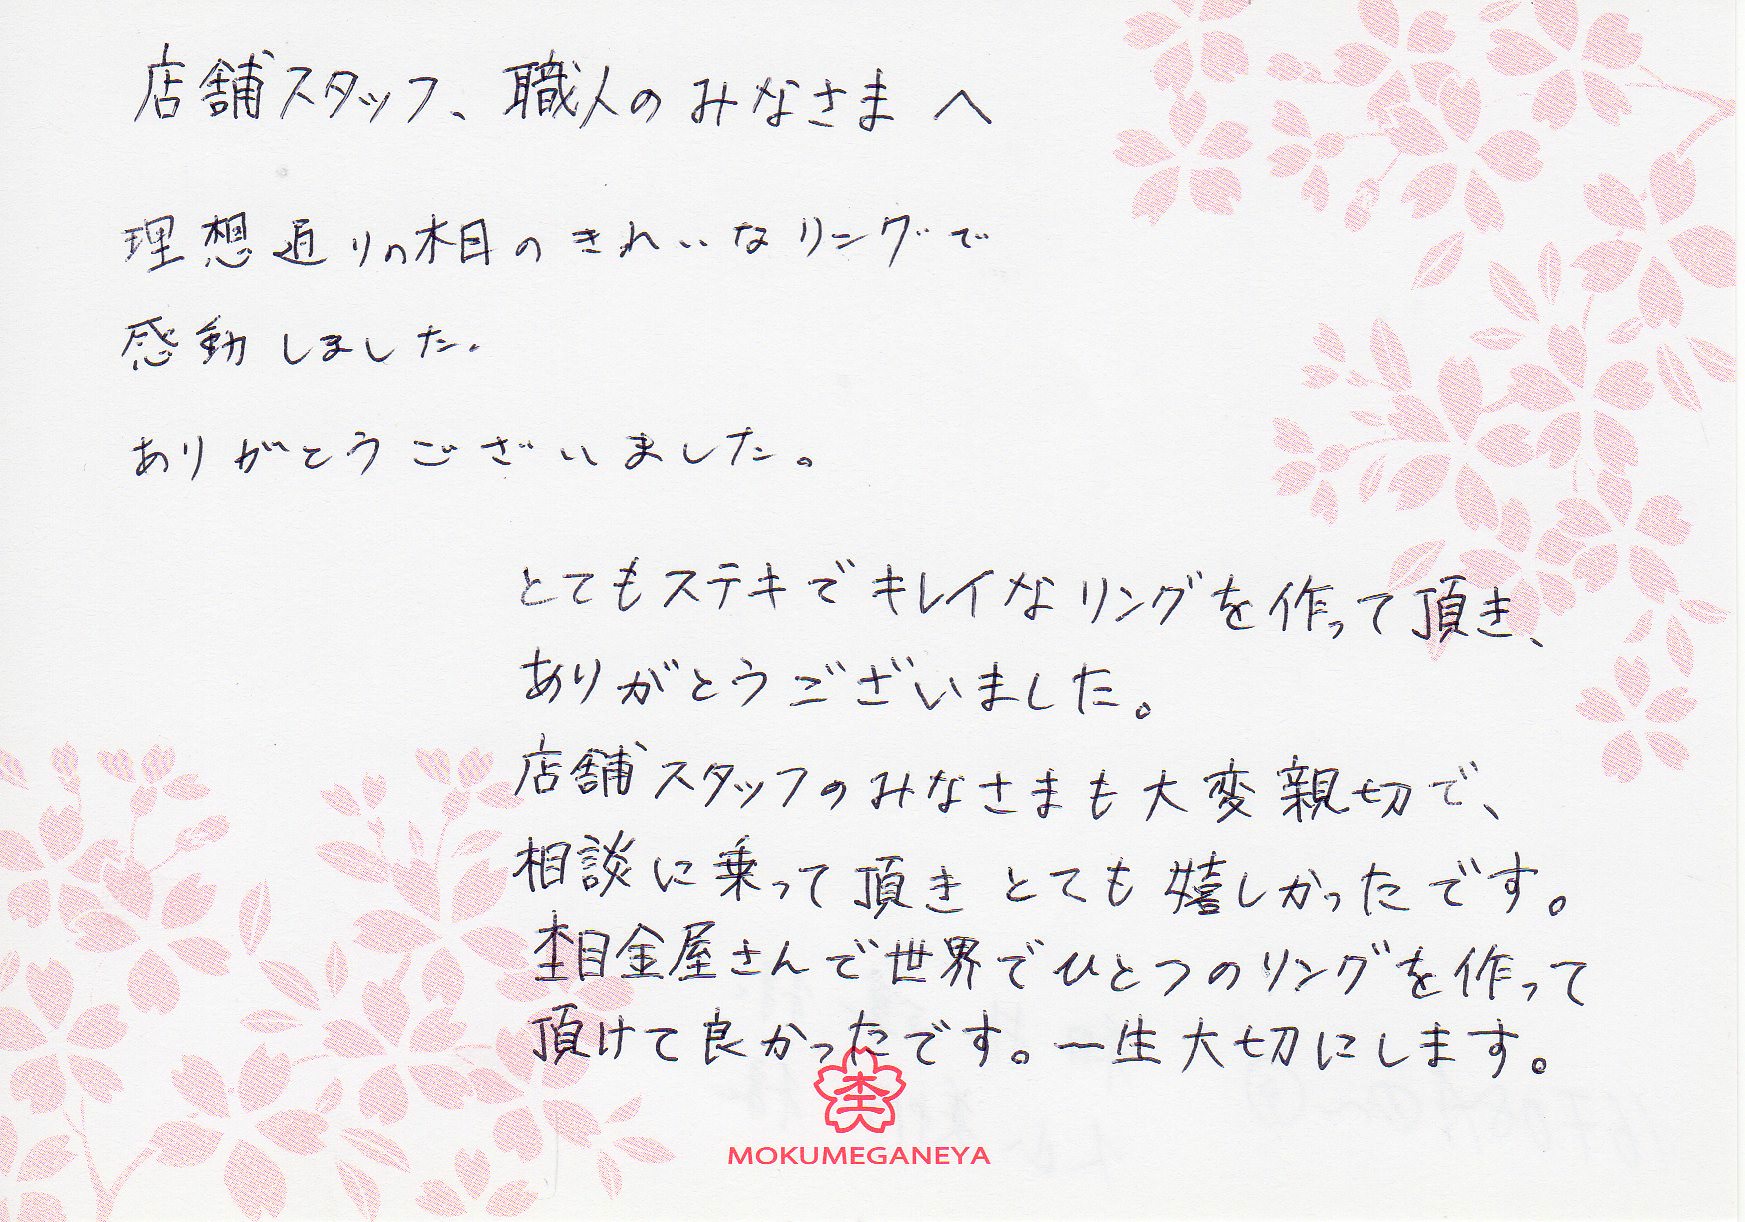 店舗スタッフ、職人のみなさまへ
理想通りの木目のきれいなリングで
感動しました。
ありがとうございました。
とてもステキでキレイなリングを作って頂き、
ありがとうございました。
店舗スタッフのみなさまも大変親切で、
相談に乗って頂きとても嬉しかったです。
杢目金屋さんで世界でひとつのリングを作って
頂けて良かったです。一生大切にします。
杢
MOKUMEGANEYA